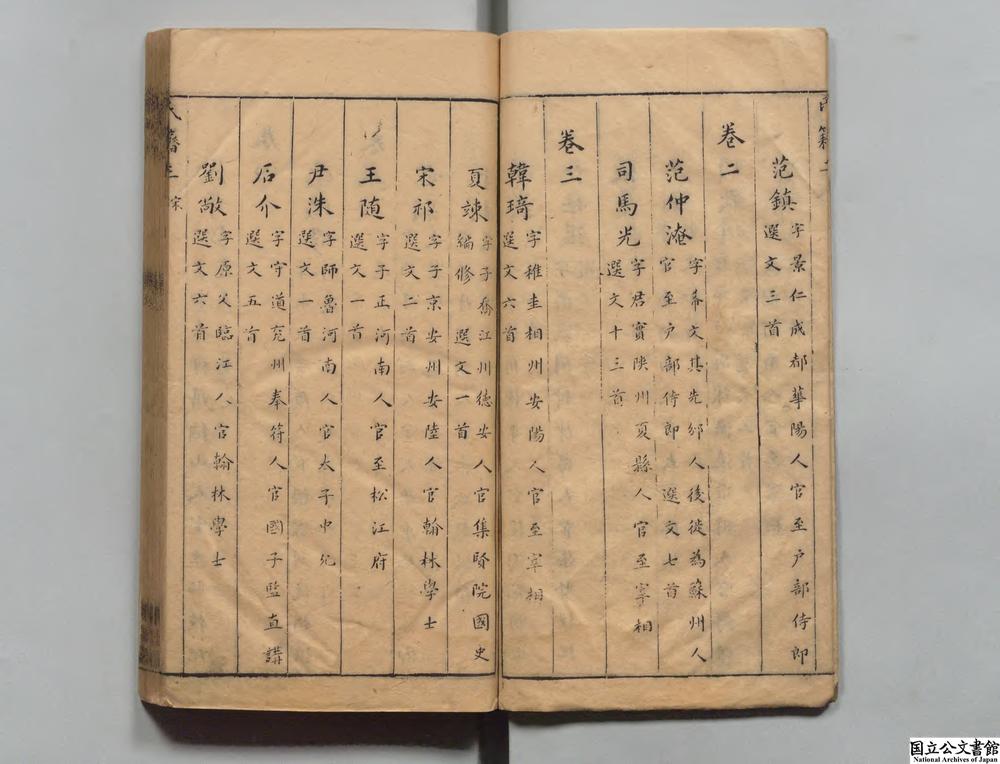 范鎮
字景仁成都華陽人官至戶部侍郎
選文三首
卷二
范仲淹
字希文其先邠人後徙為蘇州人
官至戶部侍郎選文七首
司馬光
字君實陝州夏縣人官至宰相
選文十三首
卷三
韓琦
字稚圭相州安陽人官至宰相
選文六首
夏竦
字子喬江州德安人官集賢院國史
編修選文一首
宋祁
字子京安州安陸人官翰林學士
選文二首
王随
字子正河南人官至松江府
選文一首
尹洙
字師魯河南人官太子中允
選文一首
石介
字守道兖州奉符人官國子監直講
選文五首
劉敞
字原父臨江人官翰林學士
選文六首
国立公文書館
National Archives of Japan